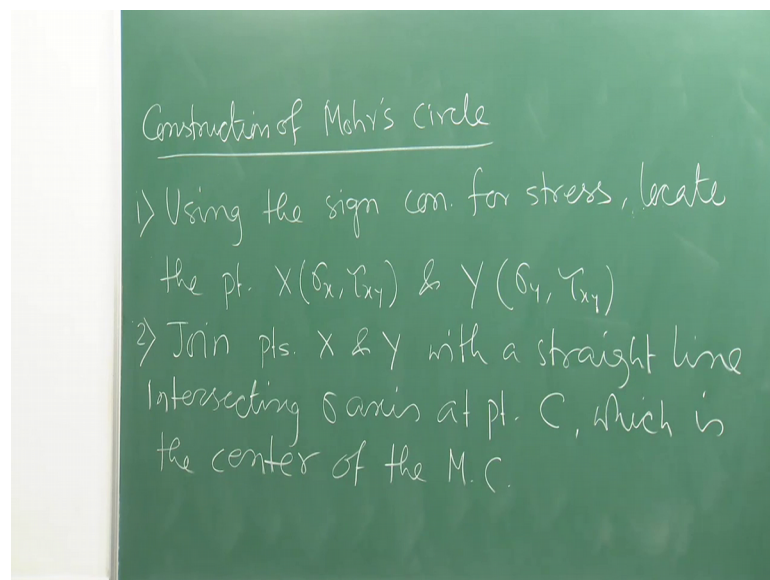 Construction of Mohr's Circle
1) Using the sign con. for stress, locate
the pt. X(σx, τxy) & Y(σy, τxy)
2) Join pts. X & Y with a straight line
Intersecting σ axis at pt. C, which is
the center of the M.C.